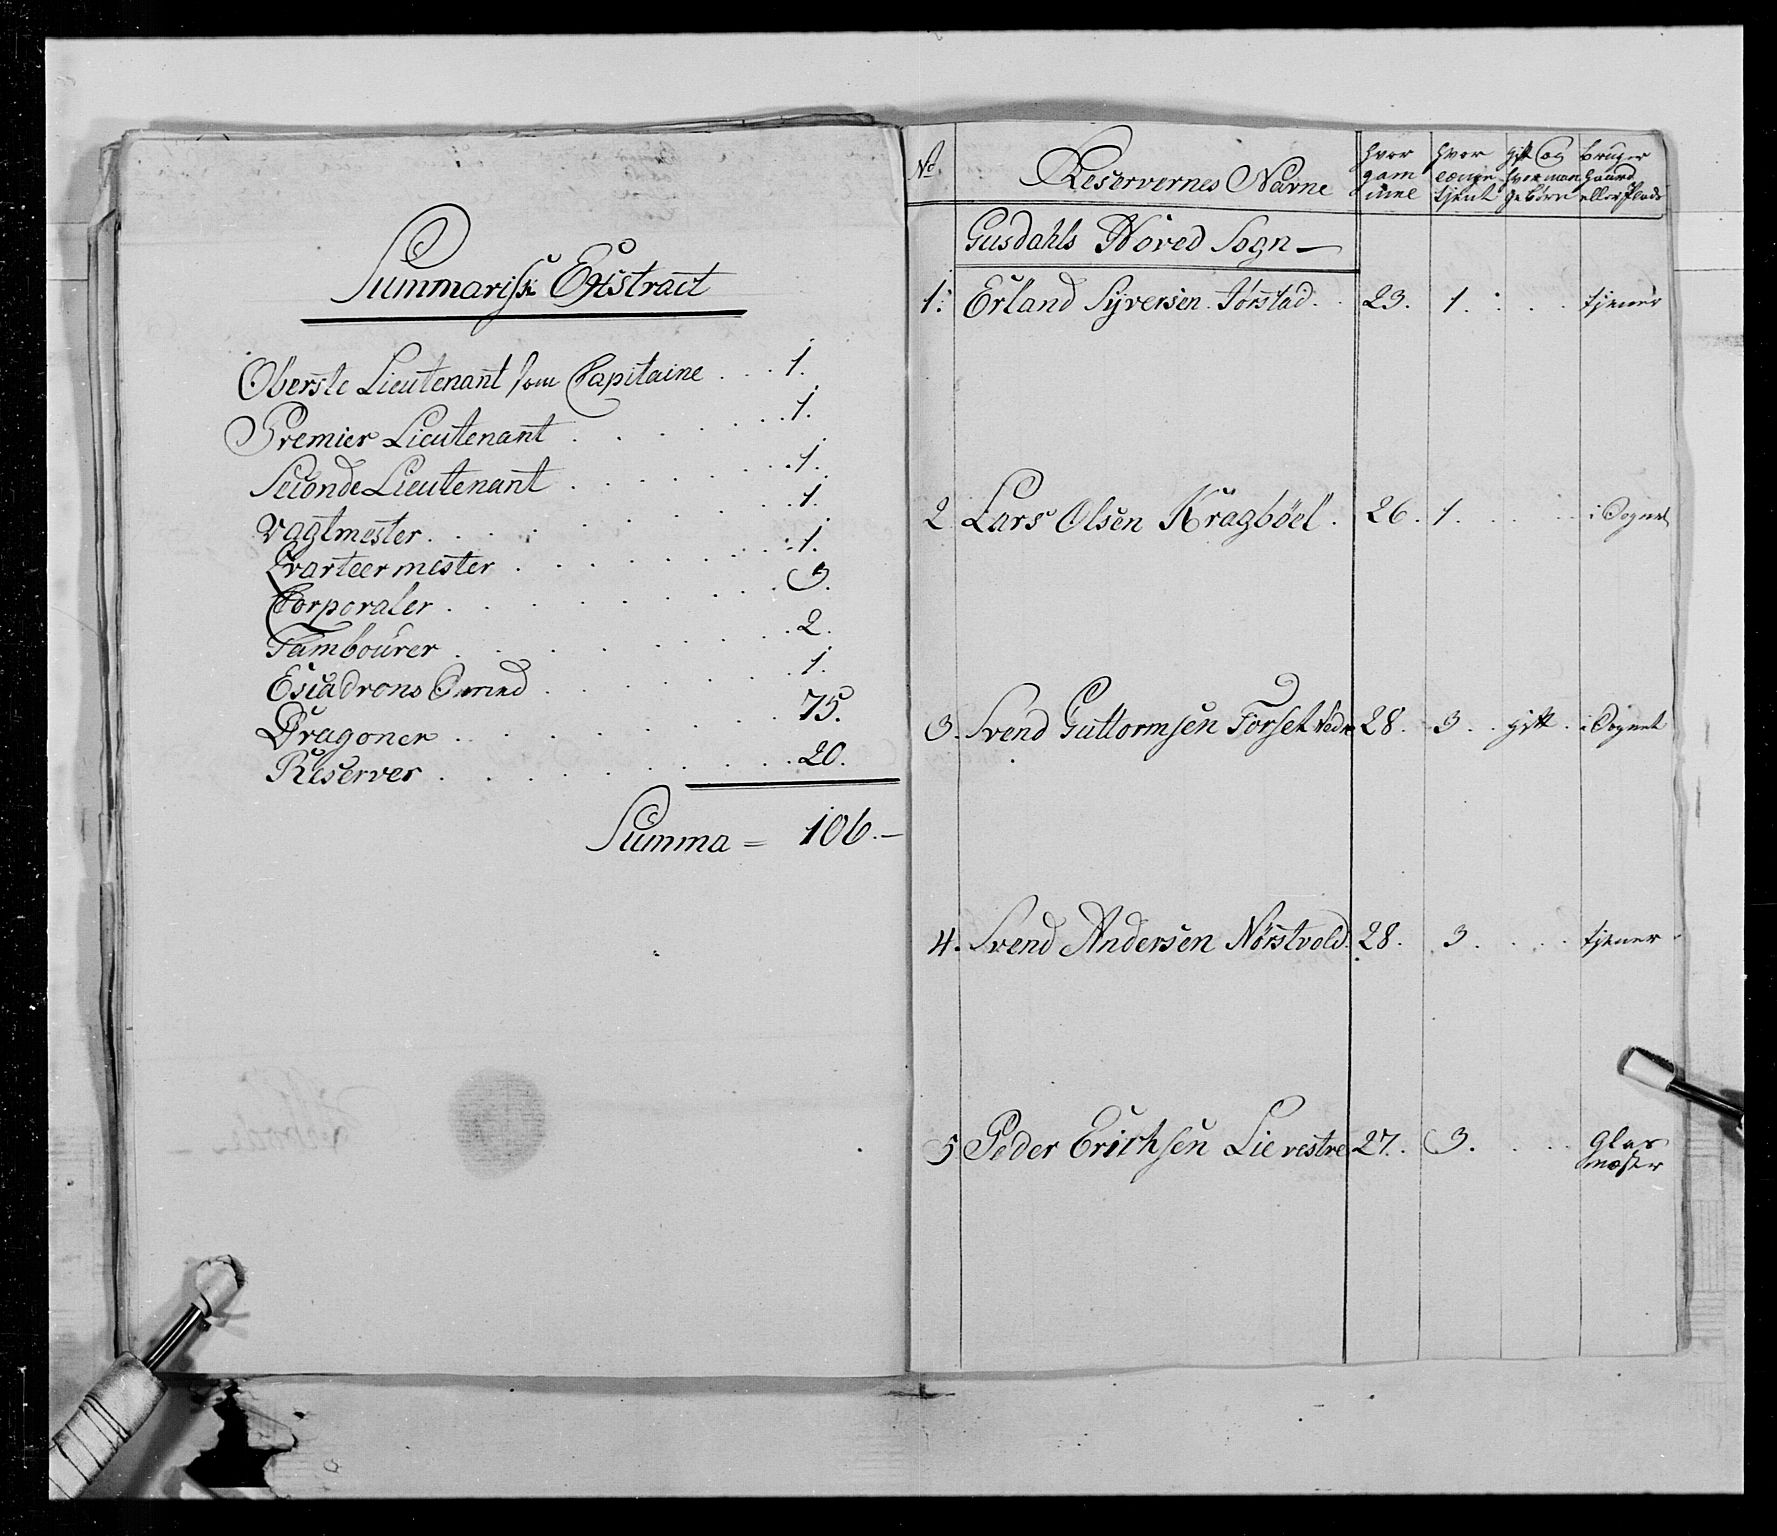 Summarisk Extract
Oberste Lieutenant som Capitaine . . . 1.
Premier Lieutenant . . . . . . 1.
Seconde Lieutenant . . . . . . 1.
Vagtmester . . . . . . . . 1.
Qvarteermester . . . . . . . 1.
Corporaler . . . . . . . . . 3.
Tambourer . . . . . . . . . 2.
Escadrons Smed . . . . . . 1.
Dragoner . . . . . . . . . 75.
Reserver . . . . . . . . . 20.
Summa = 106. —
No. Reservernes Navne hvor gammel hvor længe tjent gift og hvor man[ge] børn bruger Gaard eller Plads
Gusdahls Hoved Sogn —
1. Erland Syversen Jørstad . 23. 1. . . . tjener
2 Lars Olsen Kragböel . 26. 1. . . . i Sognet
3. Svend Guttormsen Forset Nedr 28. 3. . gift . i Sognet
4. Svend Andersen Nörstvold. 28. 3. . . . tjener
5 Peder Erichsen Lie vestre 27. 3. . . . Glas
mæster